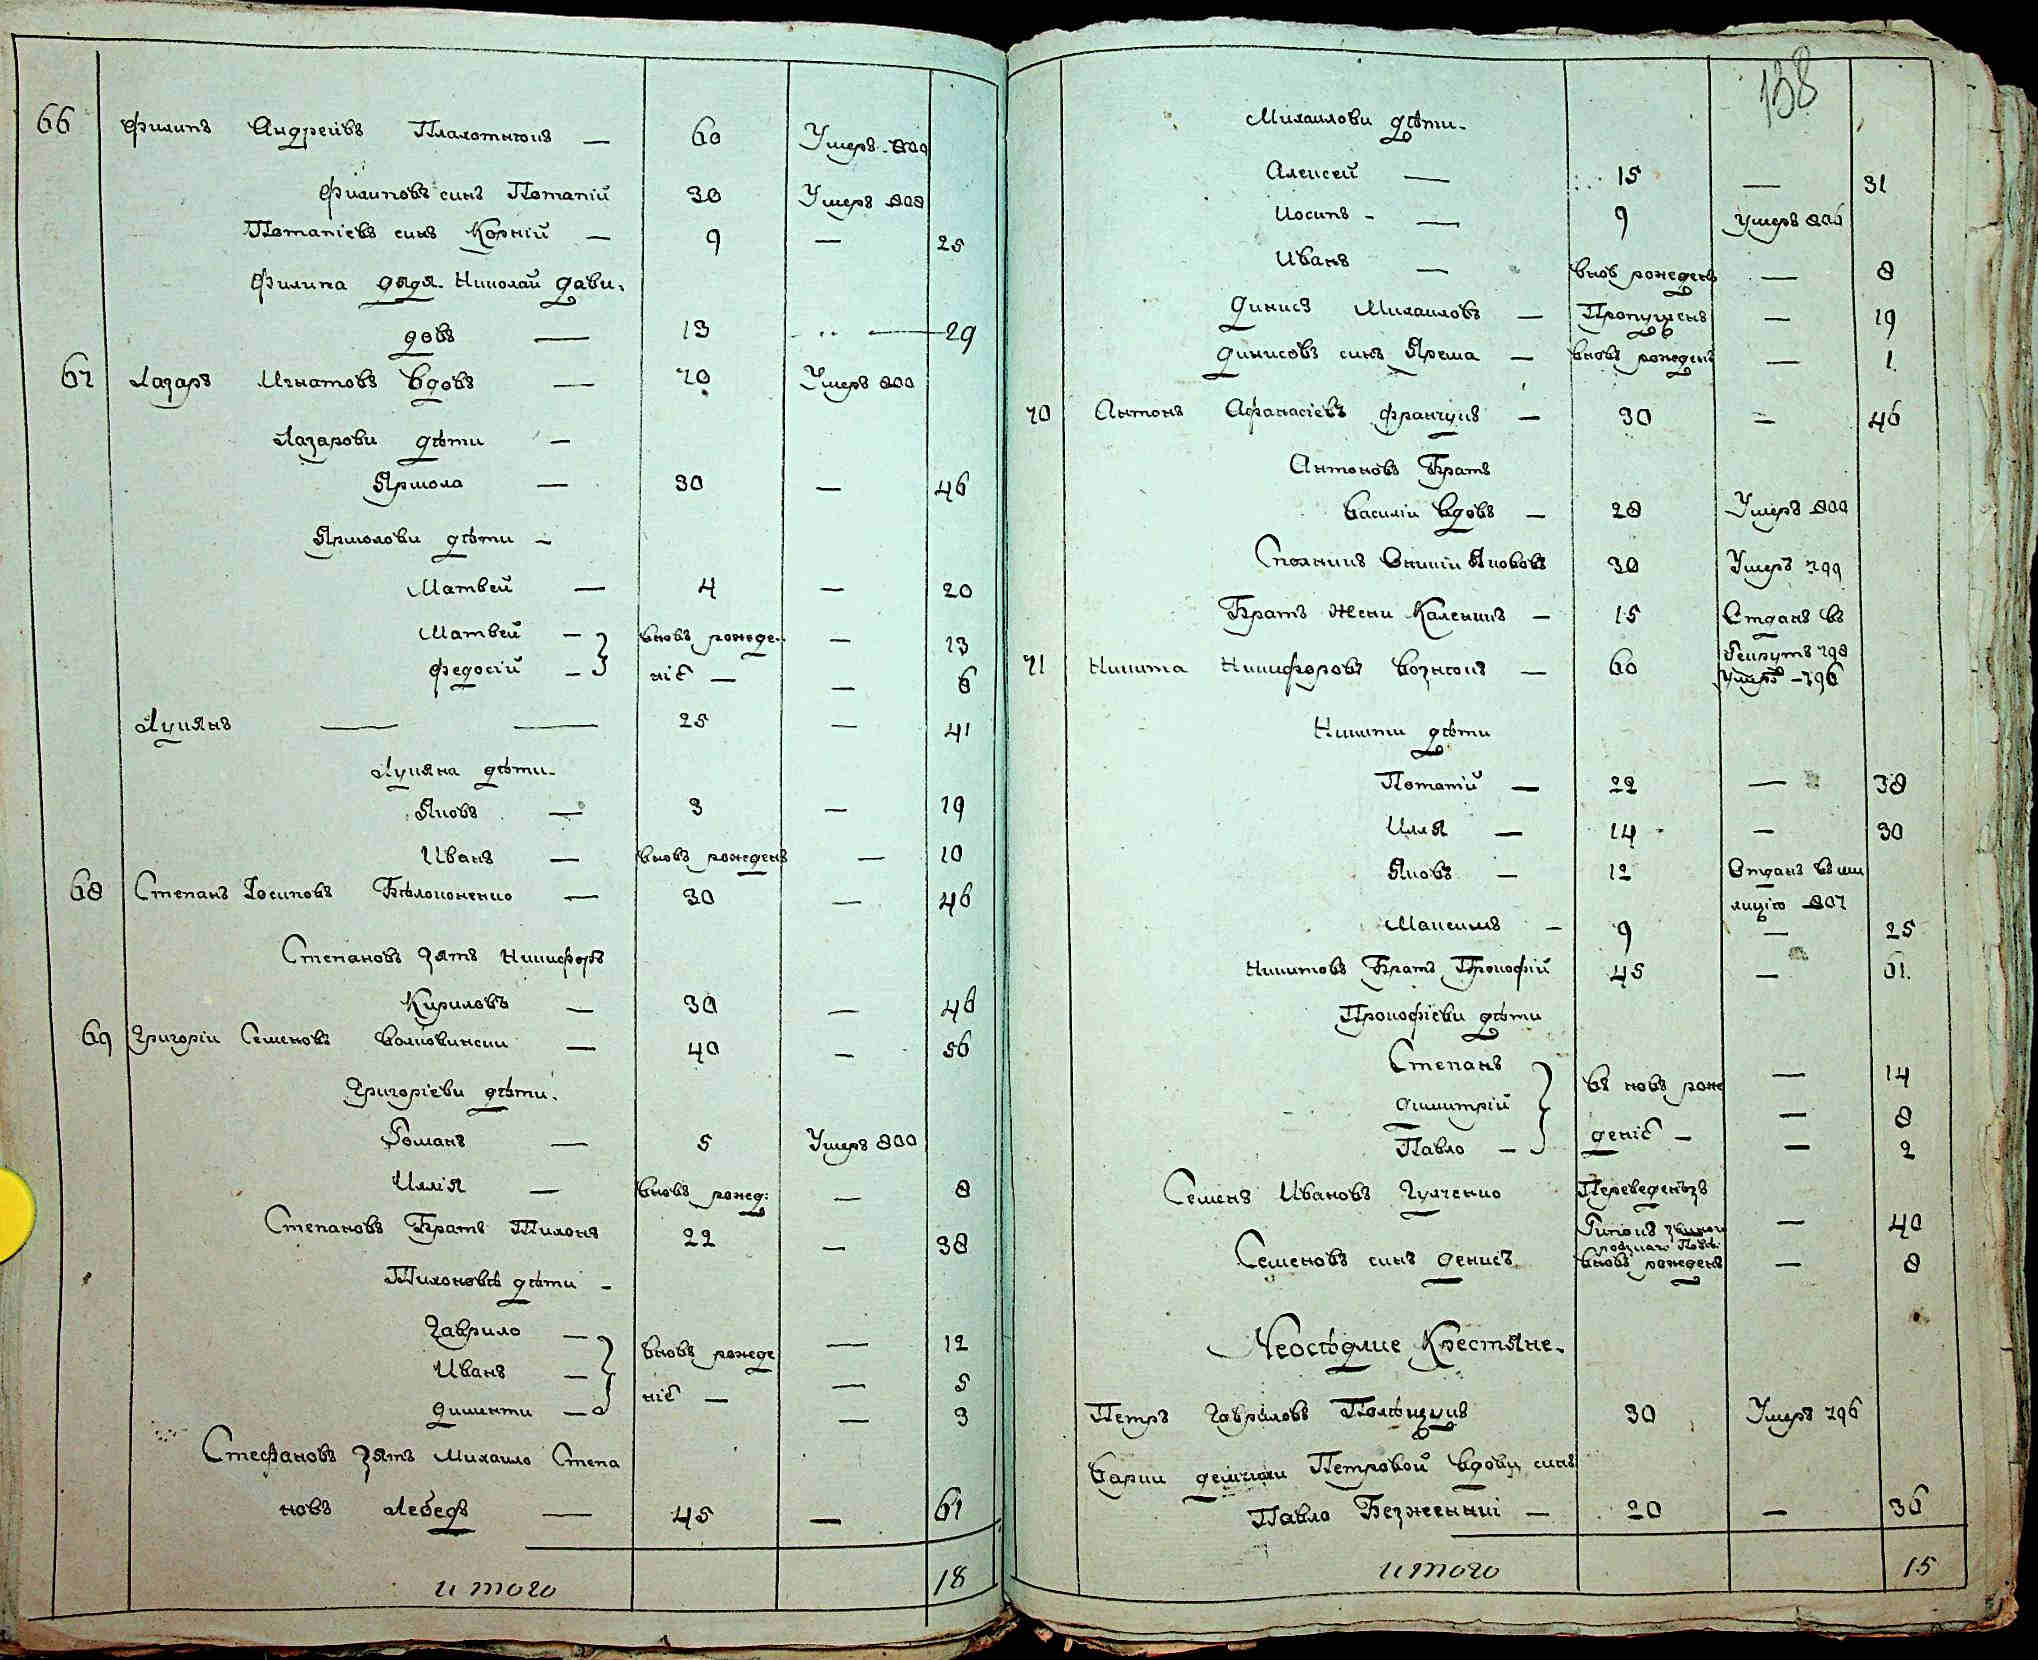 66 Филипъ Андреивъ Плахотнюкъ — 60 Умеръ 809
Филиповъ синъ Потапій 30 Умеръ 808
Потапіевъ синъ Корній — 9 — 25
Филипа дядя Николай Дави-
довъ — 13 — 29
67 Лазаръ Игнатовъ вдовъ — 70 Умеръ 800
Лазарови дѣти —
Ярмола — 30 — 46
Ярмолови дѣти —
Матвей — 4 — 20
Матвей — вновъ рожде- — 13
Федосій — ніе — — 6
Лукянъ — — 25 — 41
Лукяна дѣти.
Яковъ — 3 — 19
Иванъ — вновъ рожденъ — 10
68 Степанъ Іосиповъ Бѣлоконенко — 30 — 46
Степановъ зять Никифоръ
Кириловъ — 30 — 46
69 Григорій Семеновъ — 40 — 56
Григоріеви дѣти.
Романъ — 5 Умеръ 800
Иллія — вновъ рожд: — 8
Степановъ братъ Тихонъ 22 — 38
Тихоновѣ дѣти —
Гаврило — 12
Иванъ — вновъ рожде — 5
Дименти — ніе — — 3
Стефановъ зять Михаило Степа
новъ Лебедь — 45 — 61
итого 18
138
Михаилови дѣти.
Алексей — 15 — 31
Иосипъ — — 9 умеръ 806
Иванъ — вновъ рожденъ — 8
Динисъ Михаиловъ — Пропущенъ — 19
Динисовъ синъ Ярема — вновъ рожденъ — 1
70 Антонъ Афанасіевъ Францукъ — 30 — 46
Антоновъ братъ
Василій вдовъ — 28 Умеръ 800
Якововъ 30 Умеръ 799
Братъ жени Каленикъ — 15 Отданъ въ
рекрутъ 798
71 Никита Никифоровъ Вознюкъ — 60 Умеръ — 796
Никити дѣти
Потапій — 22 — 38
Илля — 14 — 30
Яковъ — 12 Отданъ въ ми
лицію 807
Максимъ — 9 — 25
Никитовъ братъ Прокофій 45 — 61.
Прокофіеви дѣти
Степанъ — 14
Димитрій въ новъ рож — 8
Павло — деніе — — 2
Семенъ Ивановъ Гулченко Переведенъ изъ
— 40
Семеновъ синъ Денисъ вновъ рожденъ — 8
Неосѣдлие Крестяне.
Петръ Гавриловъ 30 Умеръ 796
Петровой вдови синъ
Павло — 20 — 36
итого 15